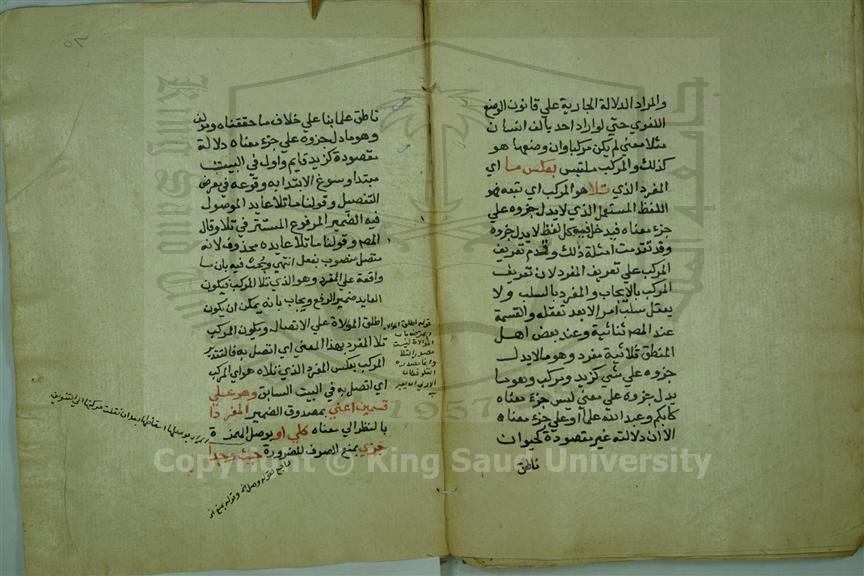 والمراد الدلالة الجارية علي قانون الوضع
اللغوي حتي لو اراد احد بالف انسان
مثلا معني لم يكن مركبا وان وضعها هو
كذلك والمركب ملتبس بعكس ما اي
المفرد الذي تلا هو المركب اي تبعه فهو
اللفظ المستعمل الذي لا يدل جزوه علي
جزء معناه فيدخل فيه كل لفظ لا يدل جزوه
وقد تقدمت امثلة ذلك وقدم تعريف
المركب علي تعريف المفرد لان تعريف
المركب بالايجاب والمفرد بالسلب ولا
يعقل سلب امر الا بعد تعقله والقسمة
عند المصم ثنائية وعند بعض اهل
المنطق ثلاثية مفرد وهو ما لا يدل
جزوه علي شي كزيد ومركب وهو ما
يدل جزوه علي معني ليس جزء معناه
كابكم وعبد الله علما او علي جزء معناه
الا ان دلالته غير مقصودة كحيوان
ناطق
ناطق علما بنا علي خلاف ما حققناه
وهو ما دل جزوه علي جزء معناه دلالة
مقصودة كزيد قايم واول في البيت
مبتدا وسوغ الابتدا به وقوعه في معرض
التفصيل وقولنا ما تلا عايد الموصول
فيه الضمير المرفوع المستتر في تلا وقال
المصم وقولنا ما تلا عايده محذوف لانه
متصل منصوب بفعل انتهي وبحث فيه بان ما
واقعة علي المفرد وهو الذي تلا المركب فيكون
العايد ضمير الرفع ويجاب بانه يمكن ان يكون
اطلق الموالاة علي الاتصال ويكون المركب
تلا المفرد بهذا المعني اي اتصل به فالتقدير
المركب بعكس المفرد الذي تلاه هو اي المركب
اي اتصل به في البيت السابق وهو علي
قسمين اعني بمصدوق الضمير المفردا
بالنظر الي معناه كلي او بوصل الهمزة
جزي بمنع الصرف للضرورة حيث وجدا
قوله اطلق الموالاة